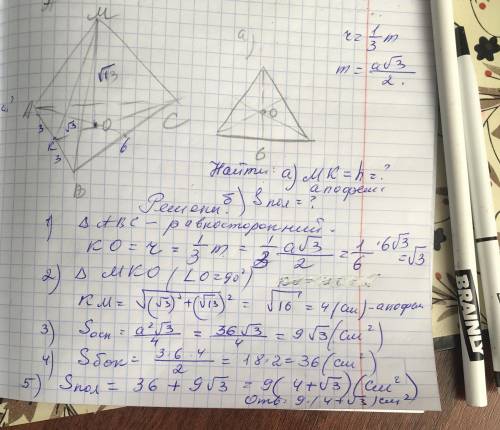 M
a)
r = 1/3 m
m = a√3/2.
√13
A
O
C
3
√3
K
3
6
B
O
6
Найти: а) MK = h = ?
апофема
б) Sпол = ?
Решение:
1) △ABC – равносторонний.
KO = r = 1/3 m = 1/3 a√3/2 = 1/6 · 6√3 = √3
2) △ MKO (∠O = 90°)
KM = √((√3)² + (√13)²) = √16 = 4 (см) - апофем
3) Sосн = a²√3/4 = 36√3/4 = 9√3 (см²)
4) Sбок = 3·6·4/2 = 18·2 = 36 (см²)
5) Sпол = 36 + 9√3 = 9(4+√3) (см²)
Отв: 9·(4+√3) см²
BRAUNLY